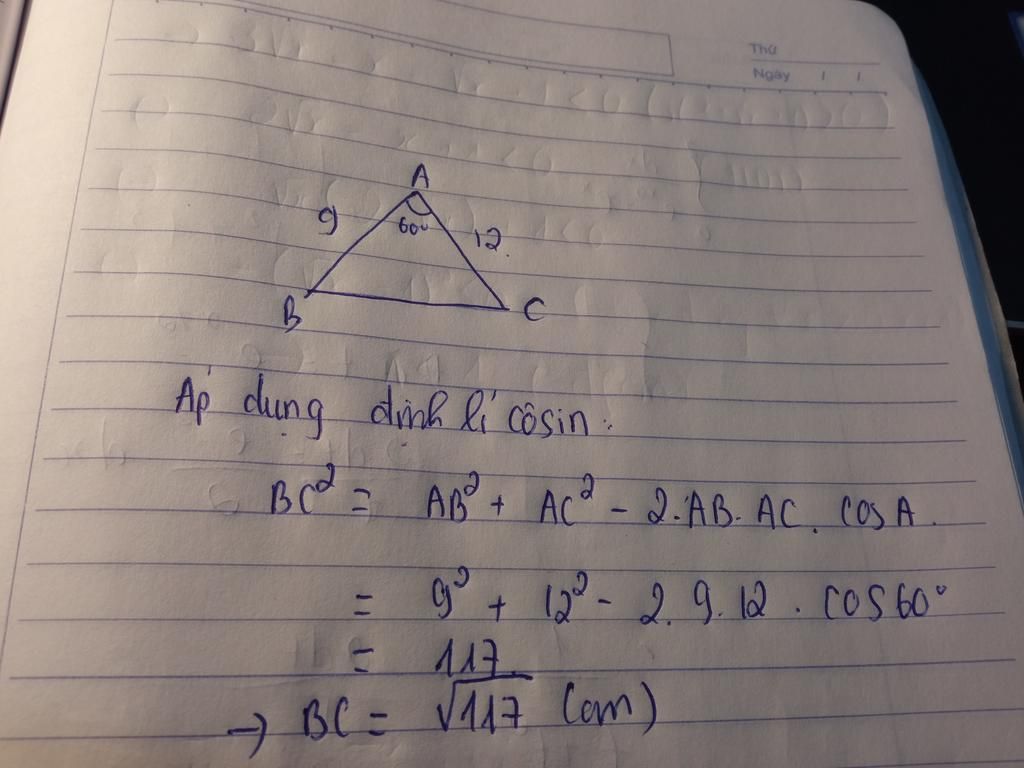 Thứ
Ngày / /
A
9
60°
12.
B
C
Áp dụng định lí côsin:
BC² = AB² + AC² - 2.AB.AC.cosA.
= 9² + 12² - 2.9.12.cos60°
= 117
→ BC = √117 (cm)